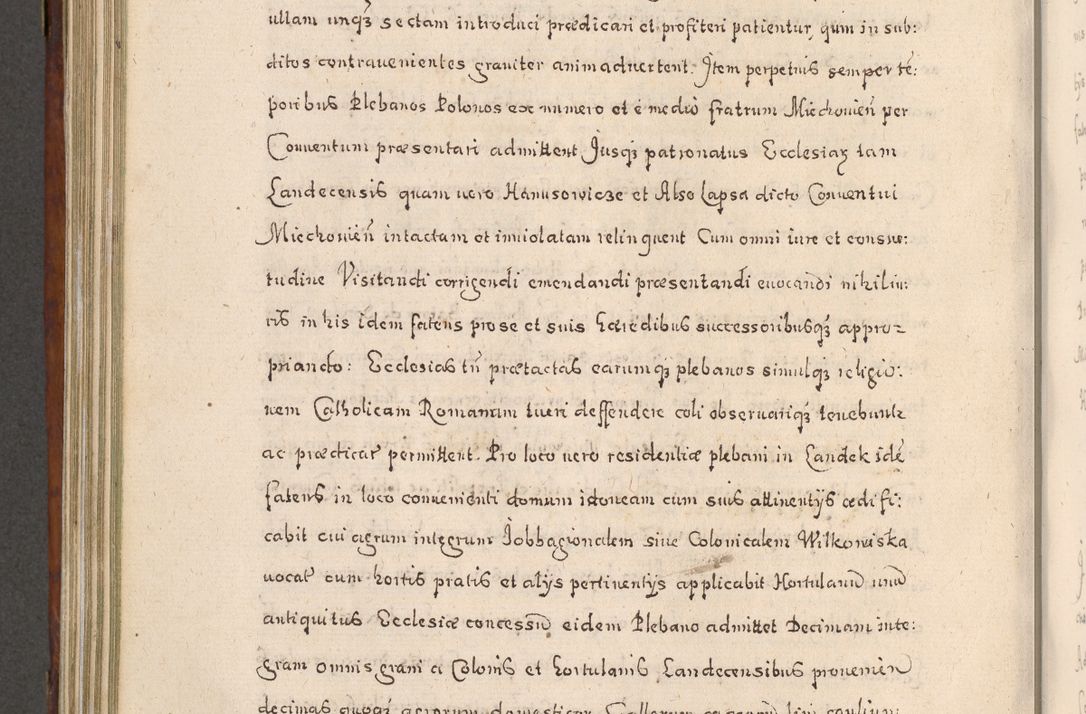 ullam unqȝ sectam introduci prædicari et profiteri patientur, quin in sub:
ditos contrauenientes grauiter animaduertent. Item perpetuis semper tē:
poribus Plebanos Polonos ex numero et é medio fratrum Miechouień per
Conuentum præsentari admittent Jusqȝ patronatus Ecclesiaȝ tam
Landecensis quam uero Hanusowicze et Also Lapsa dicto Conuentui
Miechouień intactam et inuiolatam relinquent Cum omni iure et consue:
tudine Visitandi corrigendi emendandi præsentandi euocandi nihil iu:
ris in his idem fatens pro se et suis hæredibus successoribusqȝ appro=
priando: Ecclesias tñ prætactas earumqȝ plebanos simulqȝ religio:
nem Catholicam Romanam tueri deffendere coli obseruariqȝ tenebuntr
ac prædicar permittent. Pro loco uero residentiæ plebani in Landek idē
fatens in loco conuenienti domum idoneam cum suis attinentijs ædifi:
cabit cui agrum integrum Jobbagionalem siue Colonicalem Wilkowiska
uocat cum hortis pratis et alijs pertinentijs applicabit Hortulanū unū
antiquitus Ecclesiæ concessū eidem Plebano admittet Decimam inte:
gram omnis grani a Colonis et hortulanis Landecensibus prouenien
decimas quoqȝ